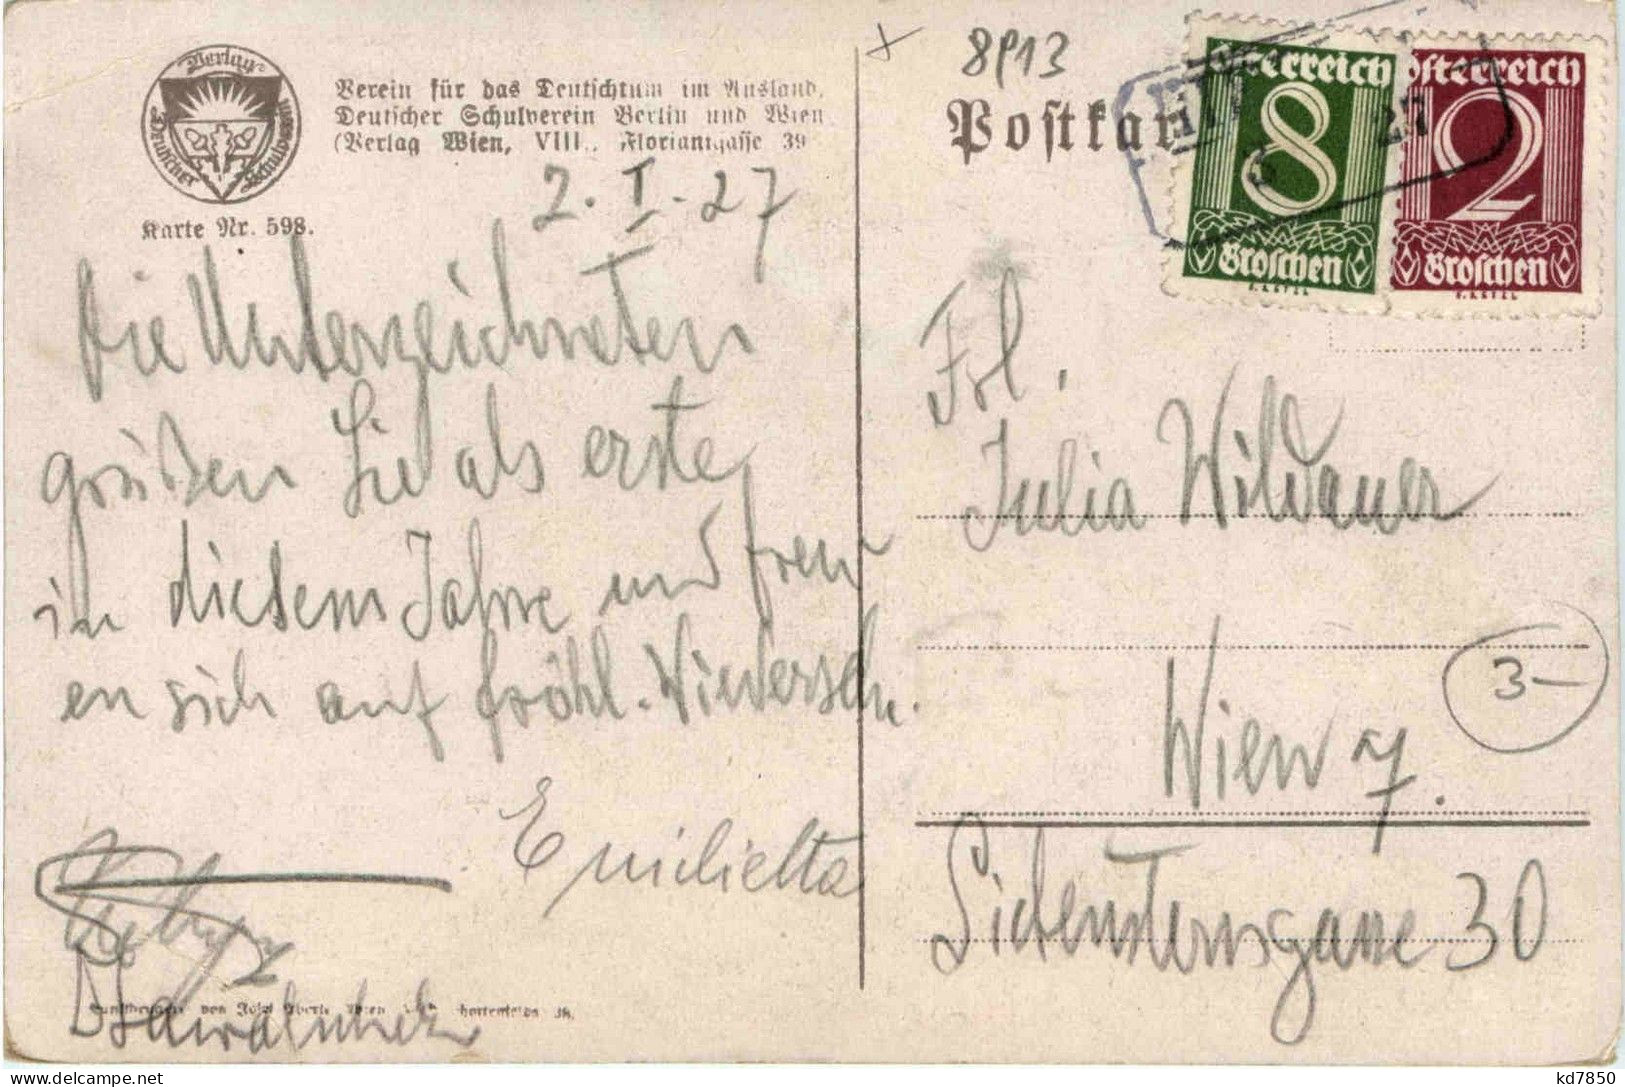 Verlag
Deutscher Schulverein
Karte Nr. 598.
Verein für das Deutschtum im Ausland,
Deutscher Schulverein Berlin und Wien
(Verlag Wien, VIII., Floriangasse 39
2. I. 27
Die Unterzeichneten
grüßen Sie als erste
in diesem Jahre und freu
en sich auf fröhl. Wiedersehn.
Emilietta
Kunstdruck von Josef Eberle Wien
8913
Postkar
27
Österreich
8
Groschen
Österreich
2
Groschen
Frl.
Julia Wildauer
Wien 7.
3-
Siebensterngasse 30
kd7850